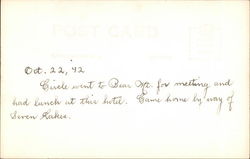 POST CARD
Oct. 22, '42
Circle went to Bear Mt. for meeting and
had lunch at this hotel. Came home by way of
Seven Lakes.